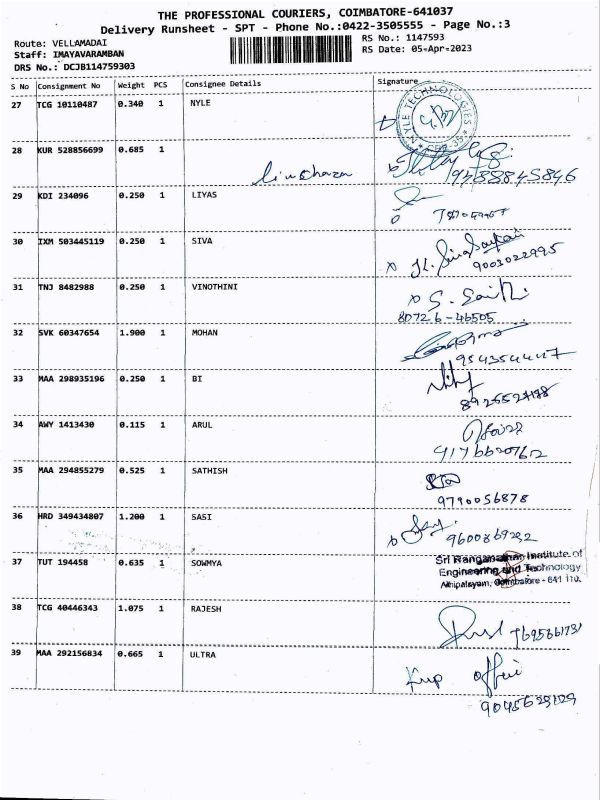 THE PROFESSIONAL COURIERS, COIMBATORE-641037
Delivery Runsheet - SPT - Phone No.:0422-3505555 - Page No.:3
Route: VELLAMADAI
RS No.: 1147593
Staff: IMAYAVARAMBAN
RS Date: 05-Apr-2023
DRS No.: DCJB114759303
S No Consignment No Weight PCS Consignee Details Signature
27 TCG 10110487 0.340 1 NYLE
NYLE TECHNOLOGIES
28 KUR 528856699 0.685 1
9488845846
29 KDI 234096 0.250 1 LIYAS
30 IXM 503445119 0.250 1 SIVA
9003022995
31 TNJ 8482988 0.250 1 VINOTHINI
80726-46505
32 SVK 60347654 1.900 1 MOHAN
33 MAA 298935196 0.250 1 BI
34 AWY 1413430 0.115 1 ARUL
35 MAA 294855279 0.525 1 SATHISH
9790056878
36 HRD 349434807 1.200 1 SASI
9600869232
37 TUT 194458 0.635 1 SOWMYA
Sri Ranganathan Institute of
Engineering and Technology
Athipalayam, Coimbatore - 641 110.
38 TCG 40446343 1.075 1 RAJESH
39 MAA 292156834 0.665 1 ULTRA